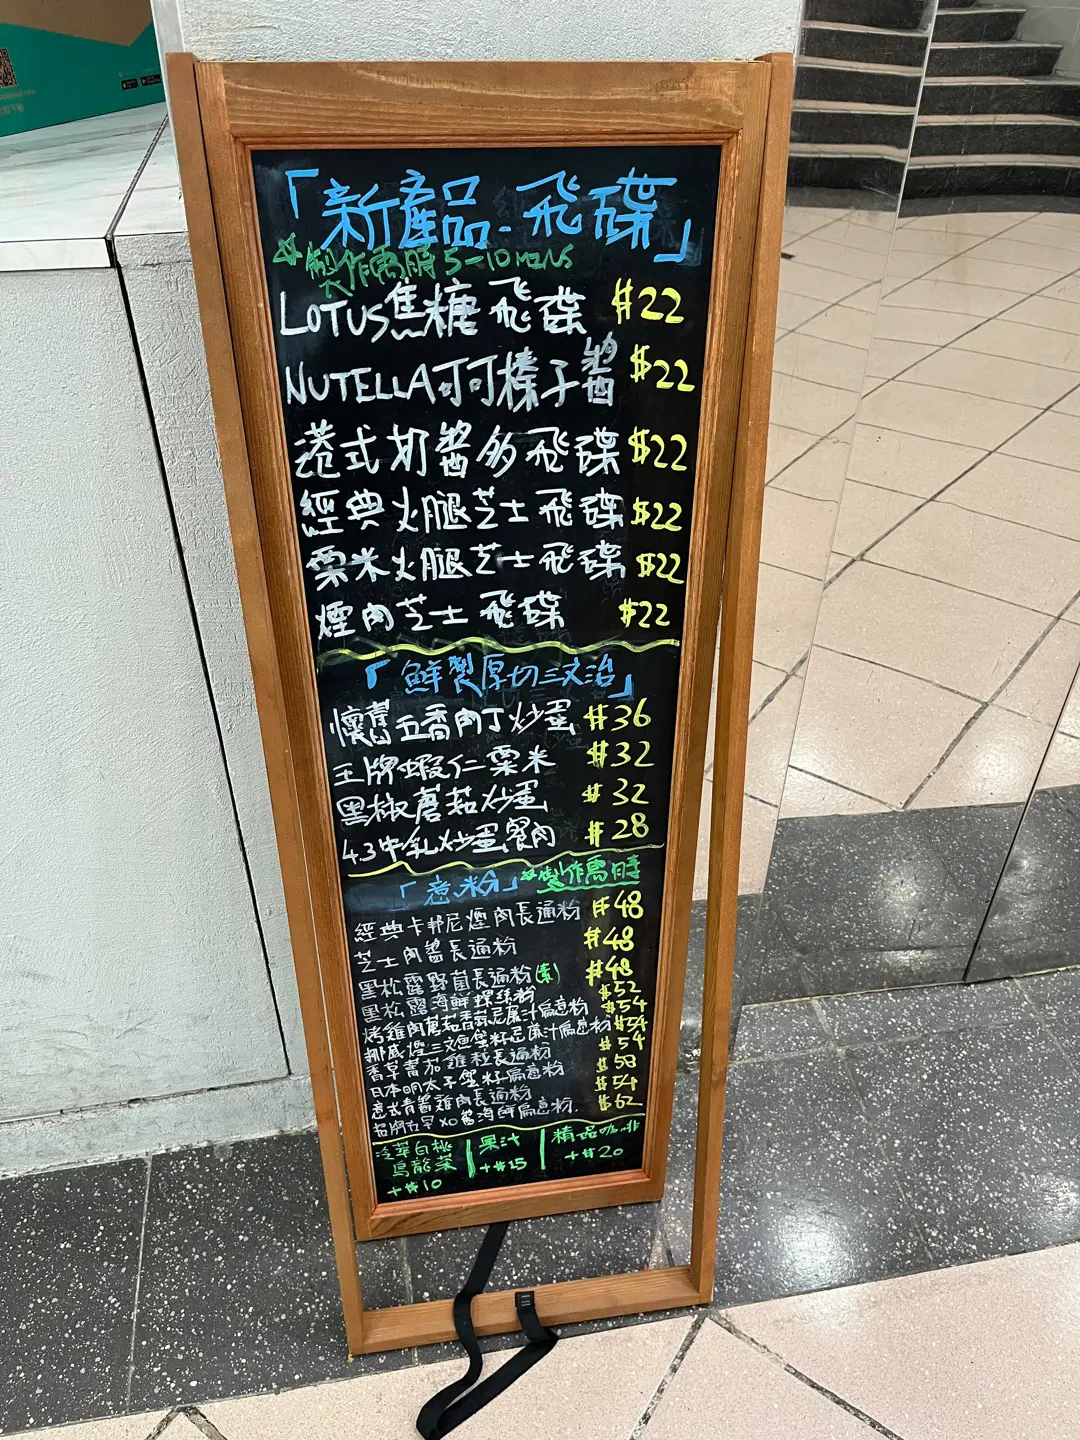 「新產品-飛碟」
*製作需時5-10MINS
LOTUS焦糖飛碟 $22
NUTELLA可可榛子醬 $22
港式奶醬多飛碟 $22
經典火腿芝士飛碟 $22
粟米火腿芝士飛碟 $22
煙肉芝士飛碟 $22
「鮮製厚切三文治」
懷舊五香肉丁炒蛋 $36
王牌蝦仁粟米 $32
黑椒蘑菇炒蛋 $32
4.3牛乳炒蛋餐肉 $28
「意粉」*製作需時
經典卡邦尼煙肉長通粉 $48
芝士肉醬長通粉 $48
黑松露野菌長通粉(素) $48
黑松露海鮮螺絲粉 $52
烤雞肉蘑菇香蒜忌廉汁扁意粉 $54
挪威煙三文魚蟹籽忌廉汁扁意粉 $54
香草蕃茄雞粒長通粉 $54
日本明太子蟹籽扁意粉 $58
意式青醬雞肉長通粉 $54
XO醬海鮮扁意粉. $62
冷萃白桃烏龍茶 +$10
果汁 +$15
精品咖啡 +$20